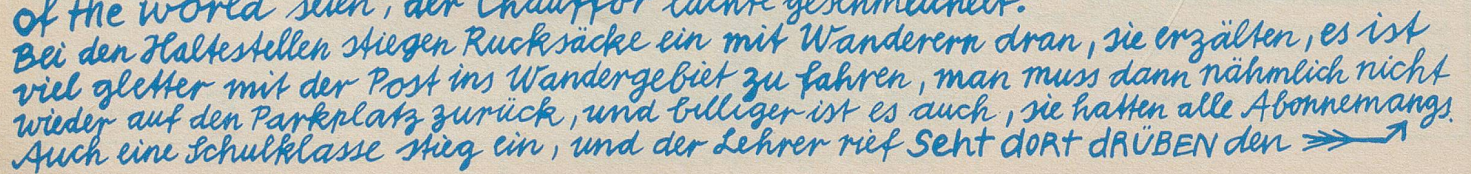 of the world seien, der Chaufför lachte geschmeichelt.
Bei den Haltestellen stiegen Rucksäcke ein mit Wanderern dran, sie erzälten, es ist
viel gletter mit der Post ins Wandergebiet zu fahren, man muss dann nähmlich nicht
wieder auf den Parkplatz zurück, und billiger ist es auch, sie hatten alle Abonnemangs.
Auch eine Schulklasse stieg ein, und der Lehrer rief Seht dort drÜBEN den